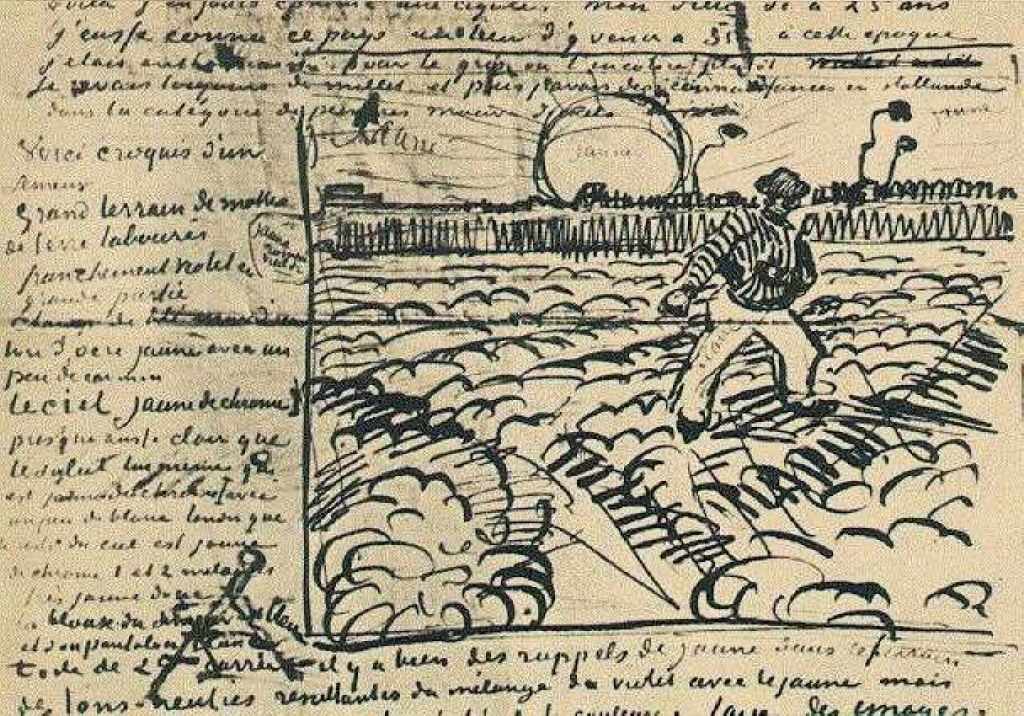 Voilà j'en jouis comme une cigale. Mon Dieu si à 25 ans
j'eusse connu ce pays au lieu d'y venir à 35 à cette époque
j'étais enthousiasmé pour le gris ou l'incolore plutôt
Je rêvais toujours de Millet et puis j'avais des connaissances en Hollande
dans la catégorie de peintres Mauve Israels
jaune
jaune
Voici croquis d'un
semeur
Grand terrain de mottes
de terre labourées
franchement violet en
grande partie
Champ de blé mur d'un
ton d'ocre jaune avec un
peu de carmin
Le ciel jaune de chrome 1
presque aussi clair que
le soleil lui même qui
est jaune de chrome 1 avec
un peu de blanc tandis que
le reste du ciel est jaune
de chrome 1 et 2 mélangés
très jaune donc
la blouse du semeur est bleue
et son pantalon blanc
toile de 25 carrée il y a bien des rappels de jaune dans le terrain
des tons neutres resultantes du mélange du violet avec le jaune mais
blanc